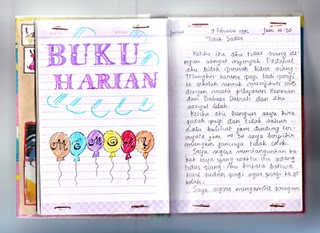 BUKU
HARIAN
MEMORY
Jumat 9 Februari 1996 Jam 14.30
Tidur Siang
Ketika itu aku tidur siang di-
ngan sangat nyenyak. Padahal
aku tidak pernah tidur siang.
Mungkin karena pagi tadi pergi
ke sekolah untuk mengikuti
dengan mata pelajaran Kesenian
dan Bahasa Daerah dan aku
sangat lelah.
Ketika aku bangun saya kira
sudah pagi dan tidak sahur.
Lalu kulihat jam dinding ter-
nyata jam 14.30 saya berpikir
mungkin jamnya tidak cocok.
Saya segera membangunkan ba-
pak saya yang waktu itu sedang
tidur siang. Aku berkata bahwa
hari sudah pagi agar pergi ke
kolah.
Saya segera mengambil seragam